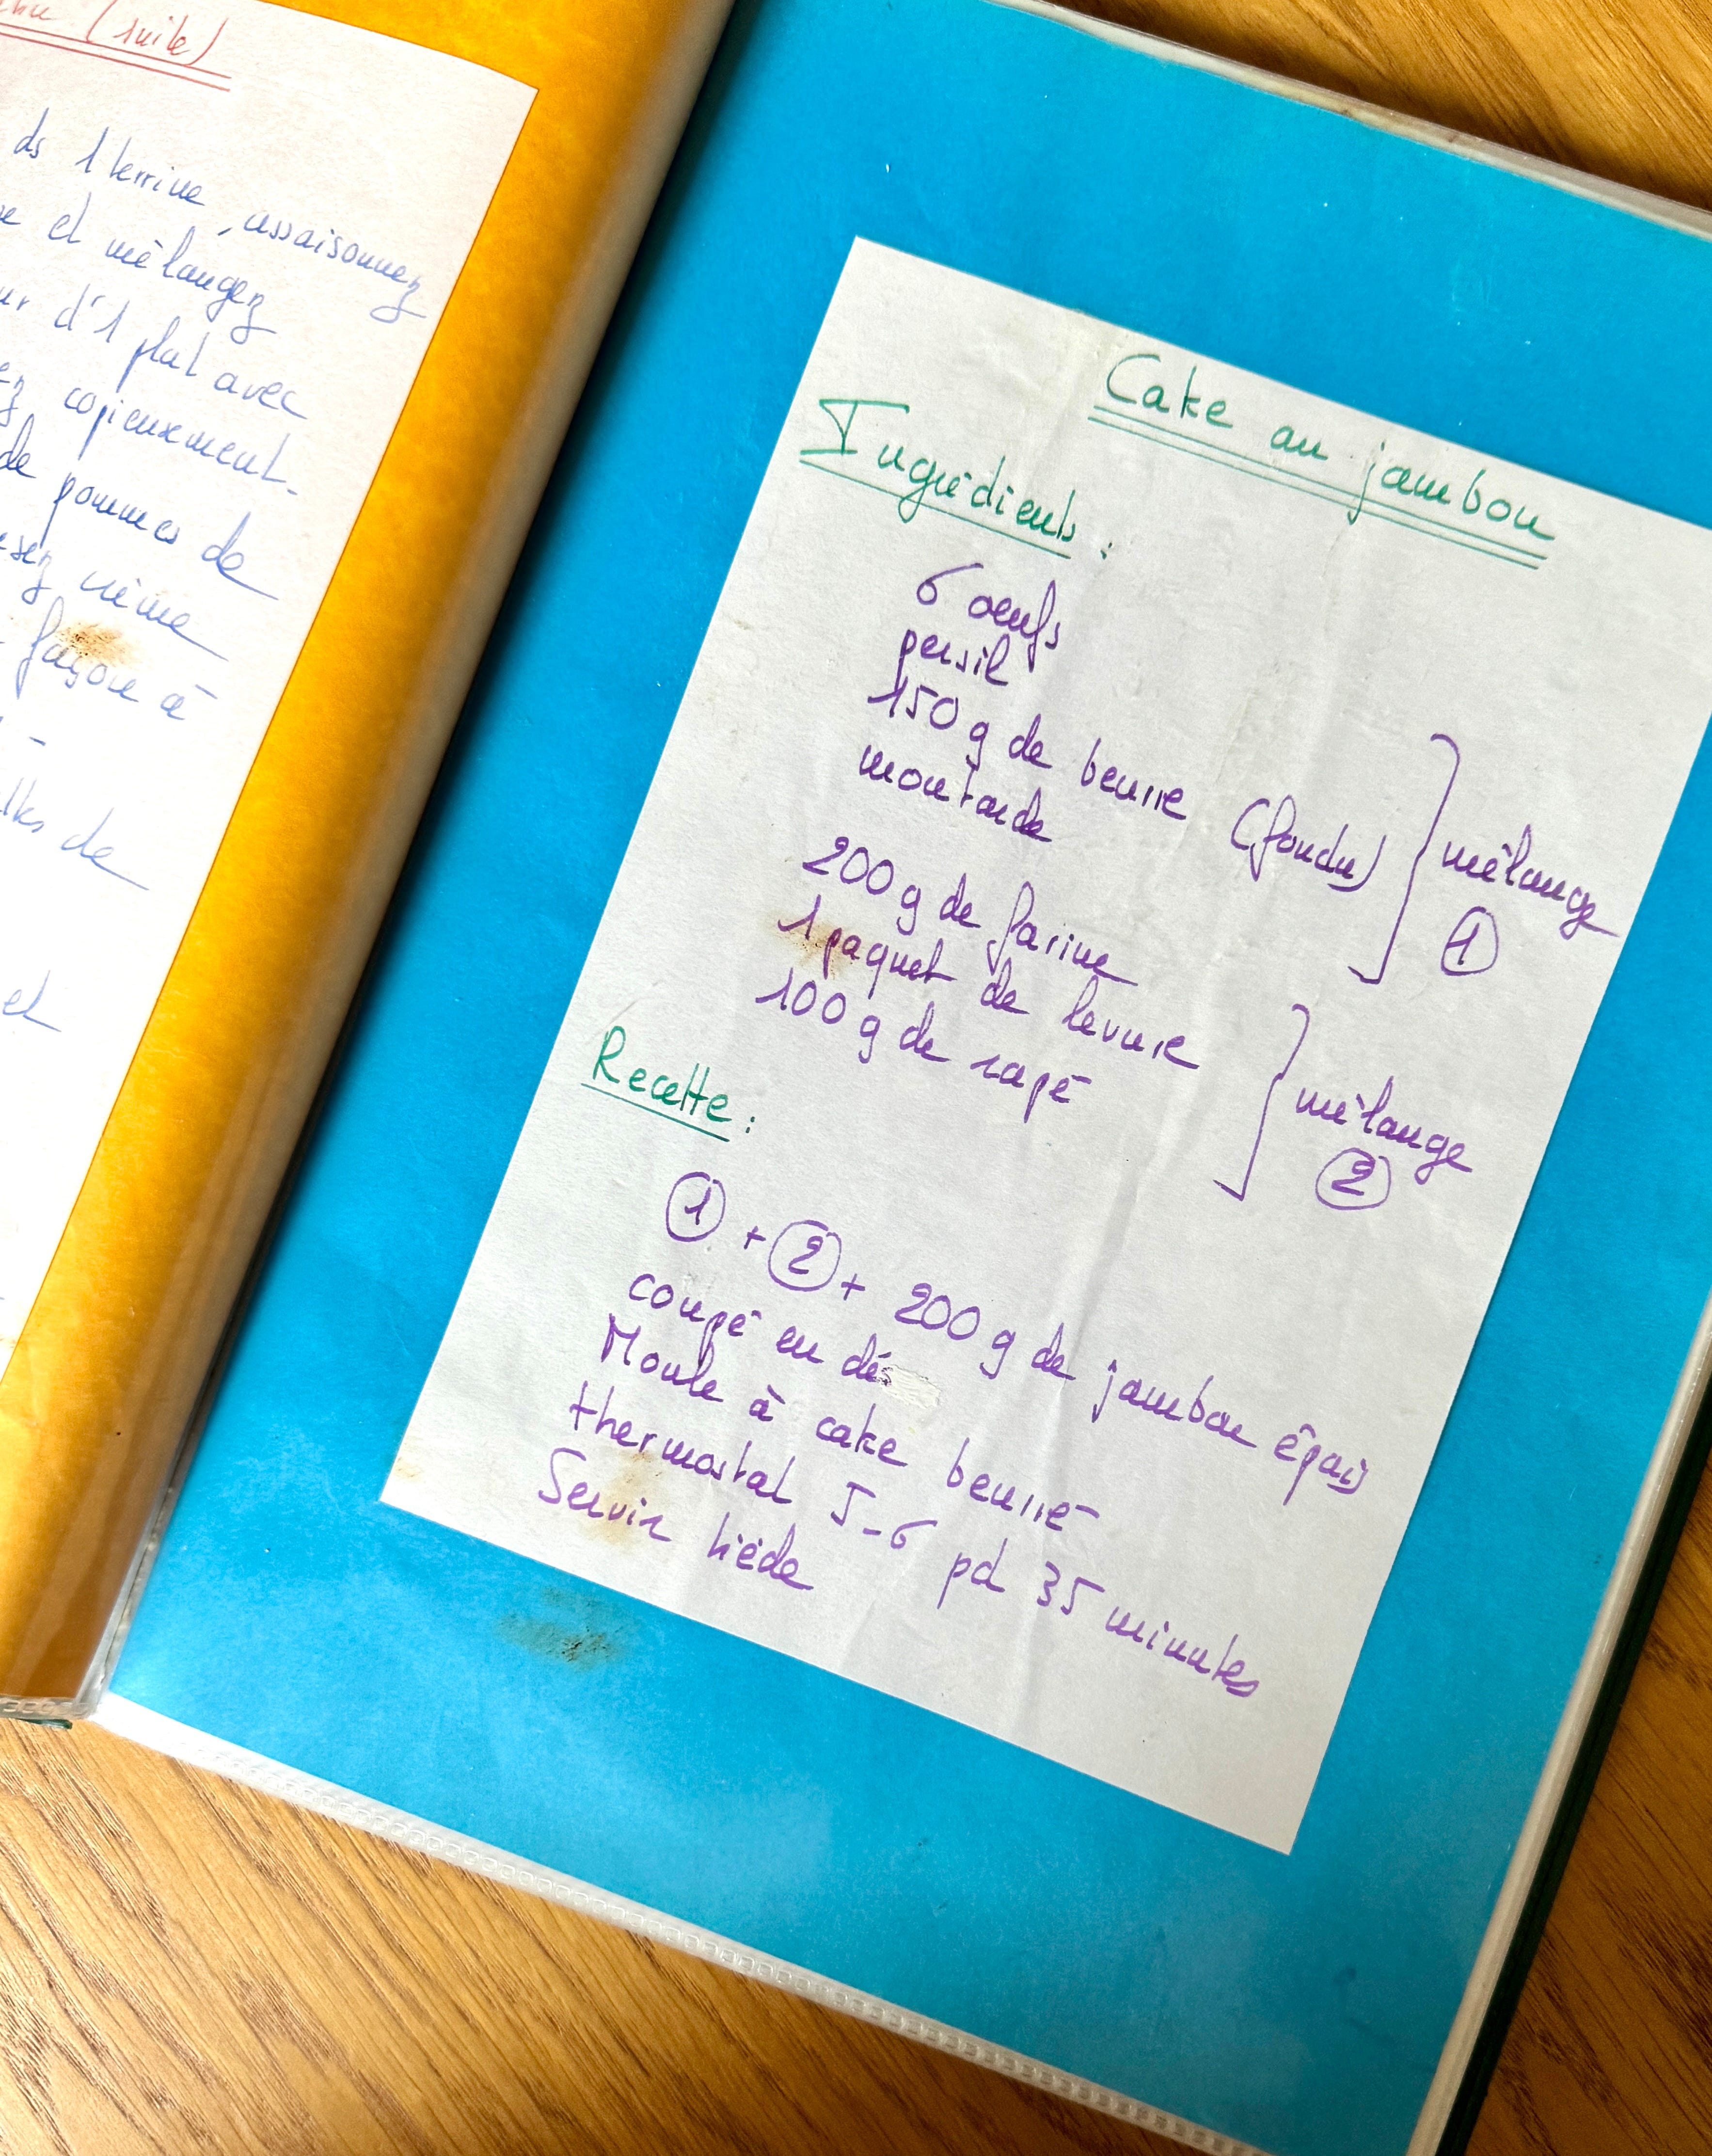 (suite)
ds 1 terrine, assaisonnez
et mélangez
d'1 plat avec
copieusement.
de pommes de
même
façon à
de
et
Cake au jambon
Ingrédients :
6 oeufs
persil
150 g de beurre (fondu)
moutarde
mélange
1
200 g de farine
1 paquet de levure
100 g de rapé
mélange
2
Recette :
1 + 2 + 200 g de jambon épais
coupé en dés
Moule à cake beurré
thermostat 5-6 pd 35 minutes
Servir tiède